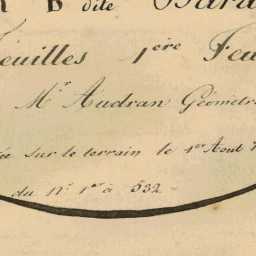 B dite
Feuilles 1ère Feu
Mr Audran Géomètre
sur le terrain le 1er Aout
du No 1er à 532